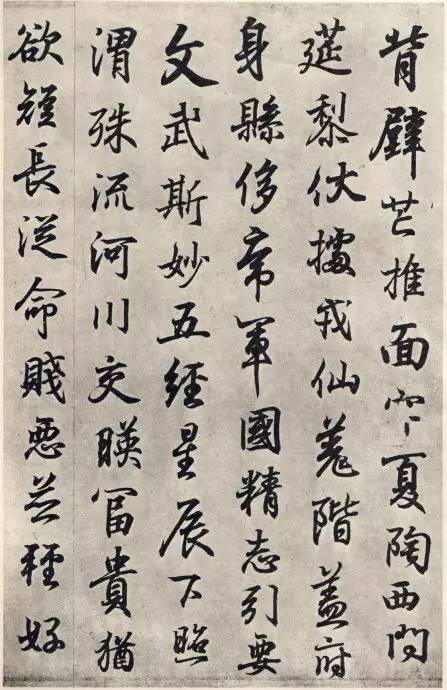 背壁芒推面夏陶西問
筵黎伏據戎仙羌階蓋府
身縣侈帝軍國精志引要
文武斯妙五經星辰下照
渭殊流河川交暎富貴猶
欲短長從命賤惡並輕好